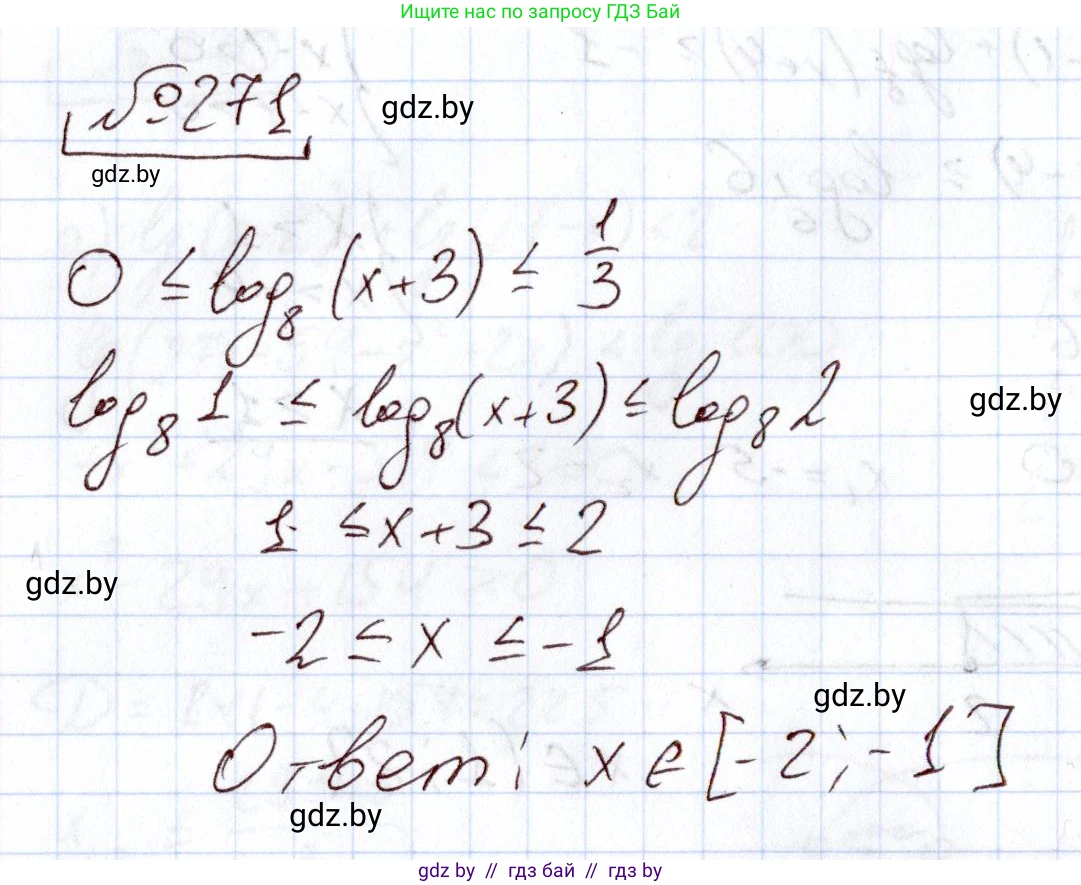 Ищите нас по запросу ГДЗ Бай
№271
gdz.by
gdz.by
0 ≤ log₈(x+3) ≤ 1/3
log₈ 1 ≤ log₈(x+3) ≤ log₈ 2
gdz.by
1 ≤ x+3 ≤ 2
gdz.by
-2 ≤ x ≤ -1
gdz.by
Ответ: x ∈ [-2; -1]
gdz.by
gdz by // гдз бай // гдз.by